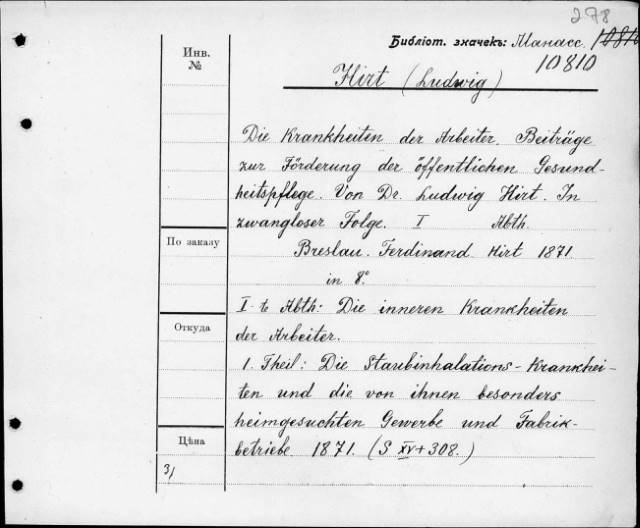 278
Библіот. значекъ: Манасс. 10810
Инв.
№
Hirt (Ludwig)
Die Krankheiten der Arbeiter. Beiträge
zur Förderung der öffentlichen Gesund-
heitspflege. Von Dr. Ludwig Hirt. In
zwangloser Folge. I Abth.
По заказу
Breslau. Ferdinand Hirt 1871
in 8°
I-te Abth: Die inneren Krankheiten
der Arbeiter.
Откуда
1. Theil: Die Staubinhalations-Krankhei-
ten und die von ihnen besonders
heimgesuchten Gewerbe und Fabrik-
betriebe 1871. (S XV+308.)
Цѣна
3/